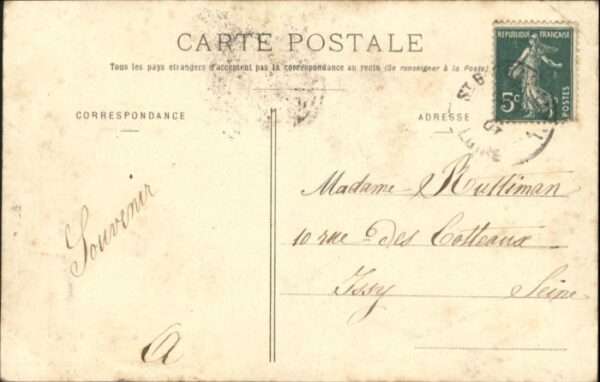 RÉPUBLIQUE FRANÇAISE
5c
POSTES
CARTE POSTALE
Tous les pays étrangers n'acceptent pas la correspondance au recto (Se renseigner à la Poste)
CORRESPONDANCE
ADRESSE
ST
07
Souvenir
A
Madame Rultiman
10 rue des Cotteaux
Issy Seine